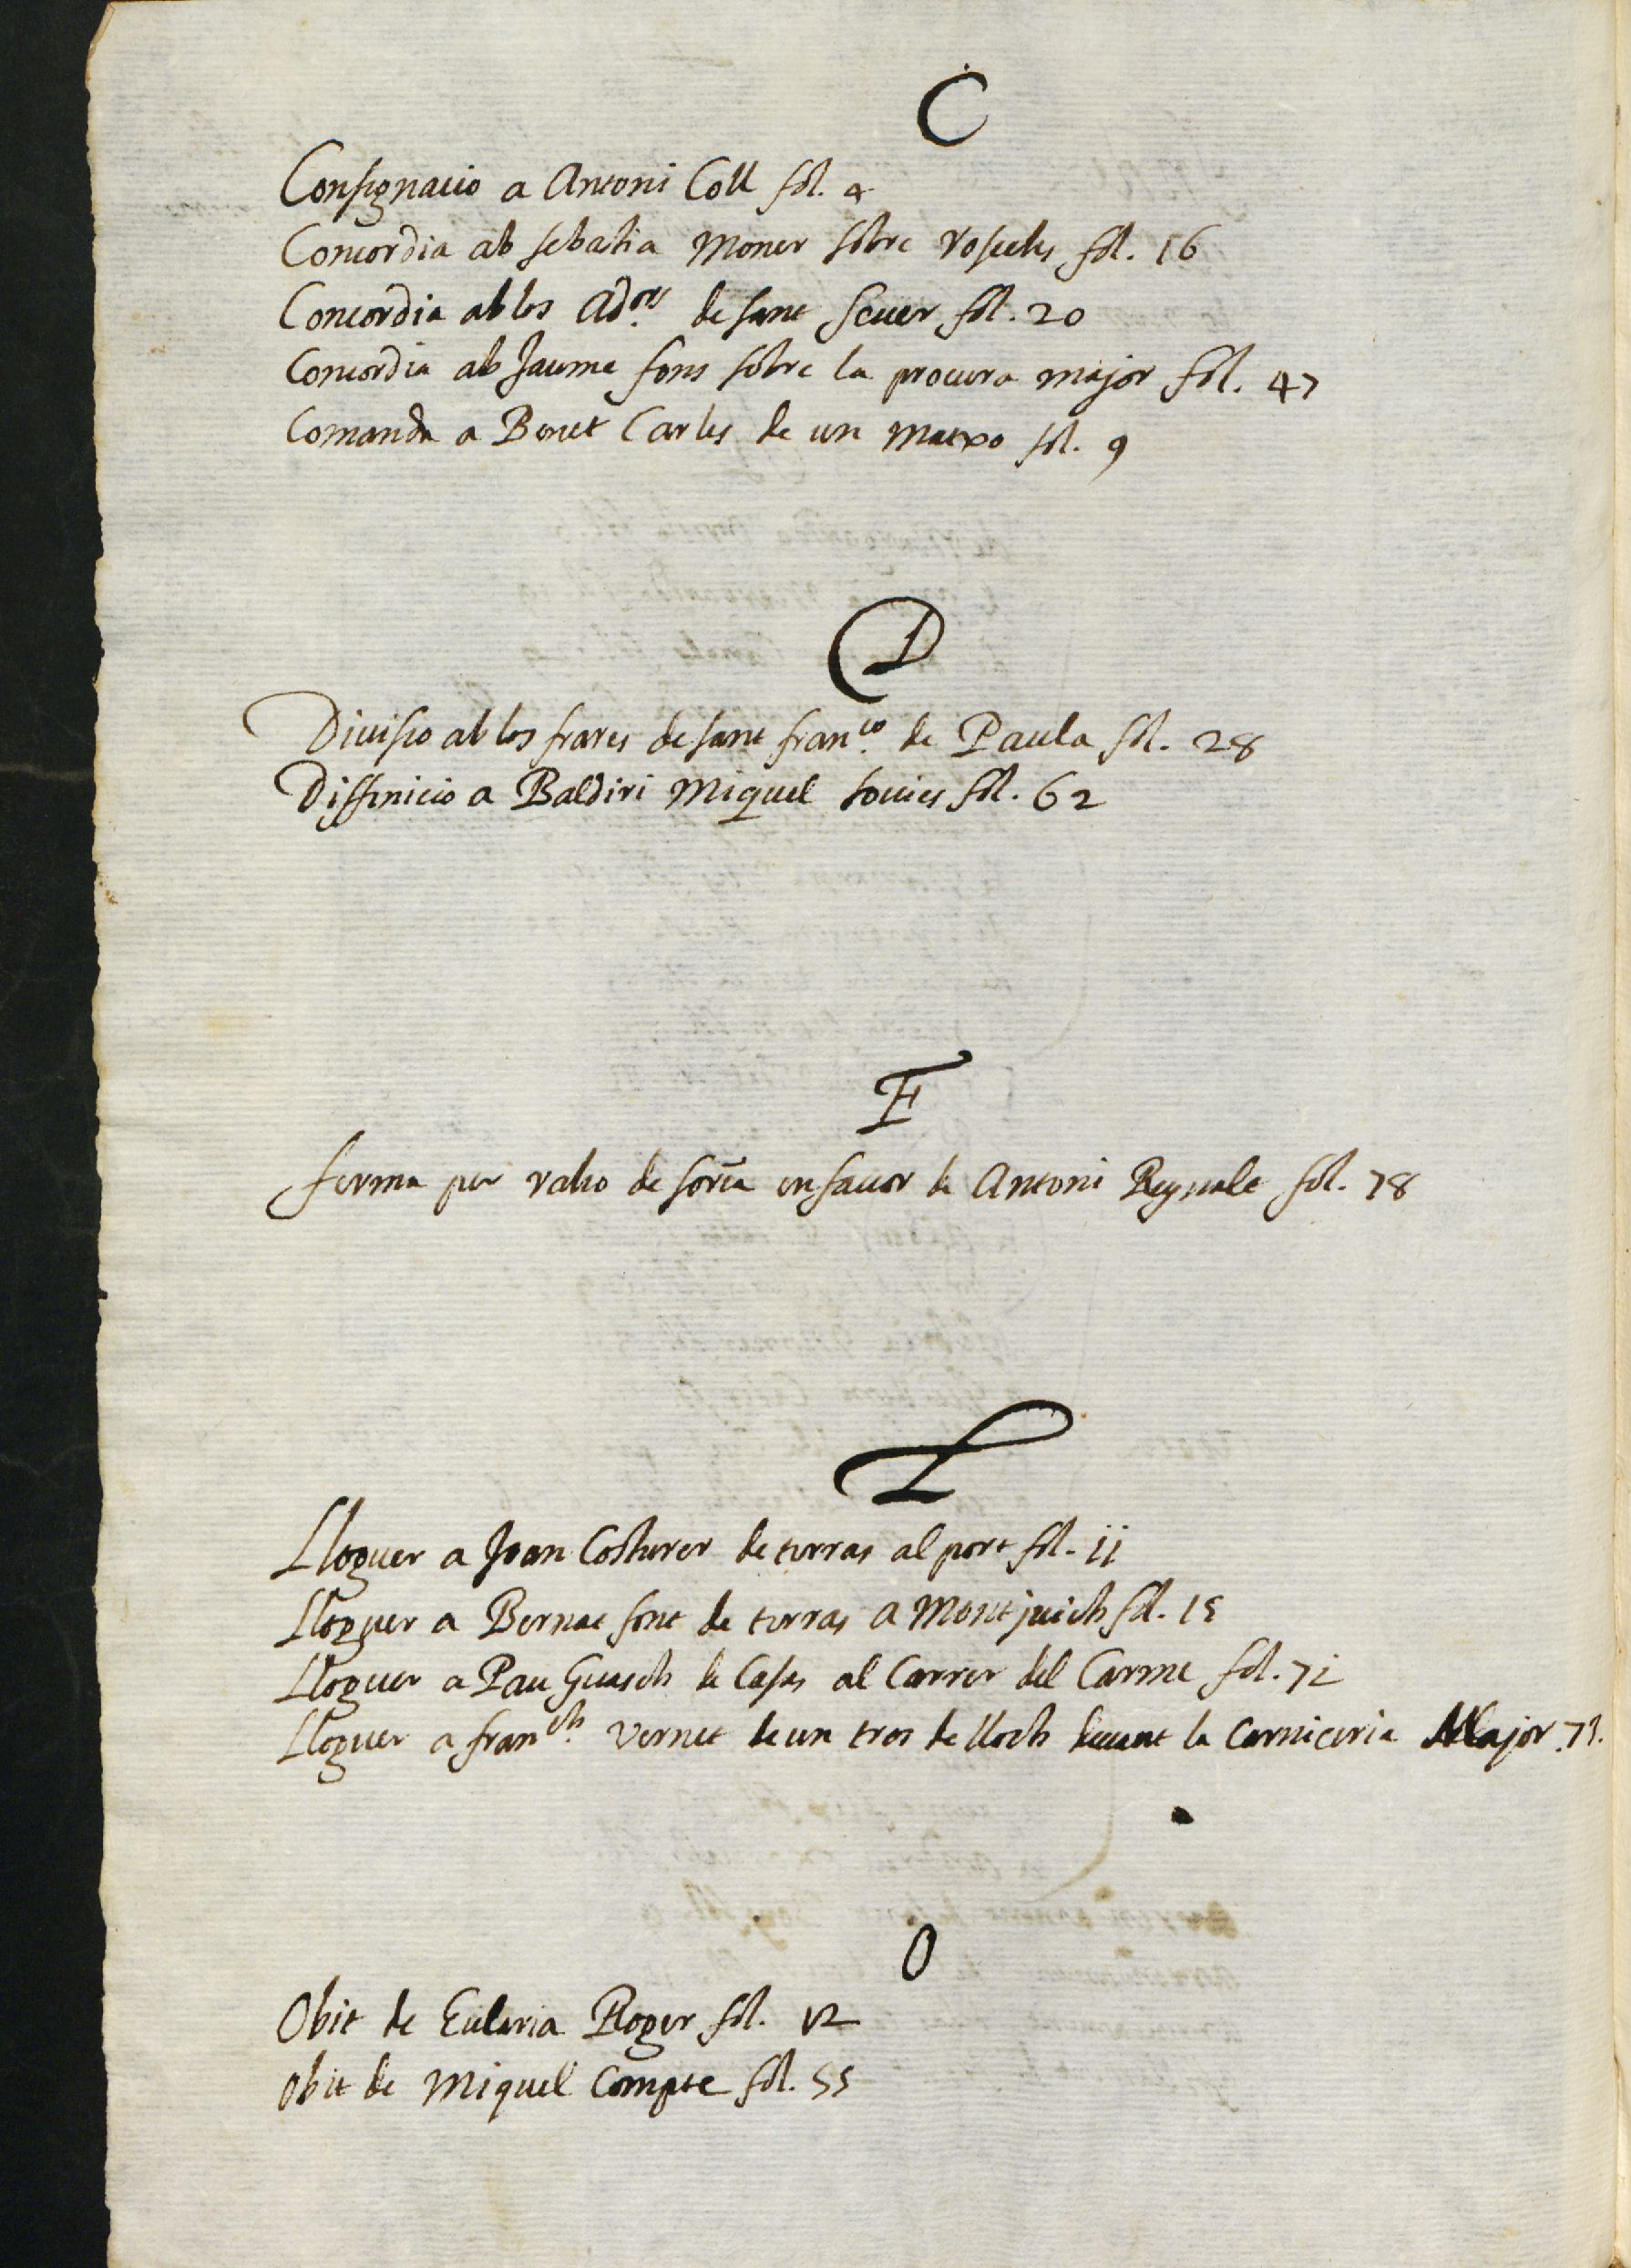 C
Consignacio a Antoni Coll fol. 4
Concordia ab sebastia Moner sobre rosectes fol. 16
Concordia ab los Ad.ors de sant Seuer fol. 20
Concordia ab Jaume fons sobre la procura major fol. 47
Comanda a Benet Carles de un matxo fol. 9
D
Diuisio ab los frares de sant fran.co de Paula fol. 28
Diffinicio a Baldiri Miquel fol. 62
F
ferma per raho de en fauor de Antoni Reynalt fol. 78
L
Lloguer a Joan Costurer de terras al port fol. 11
Lloguer a Bernat font de terras a Montjuich fol. 15
Lloguer a Pau Guasch de Casas al Carrer del Carme fol. 71
Lloguer a fran.ch Vernet de un tros de lloch deuant la Carniceria Major. 73.
O
Obit de Eularia Roger fol. 12
Obit de Miquel Compte fol. 55